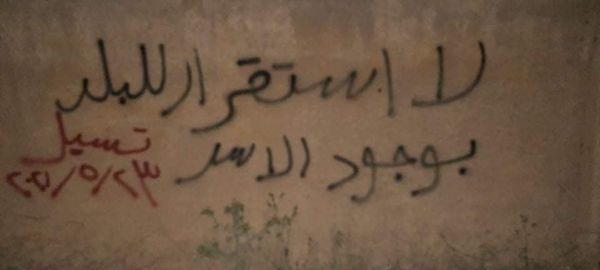 لا استقرار للبلد
بوجود الاسد
تسيل